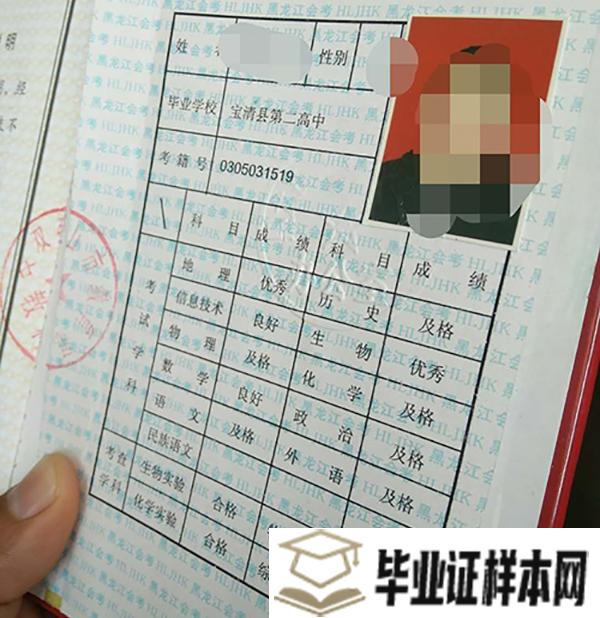 姓 性别
毕业学校 宝清县第二高中
考籍号 0305031519
科目 成绩 科目 成绩
考试学科
地理 优秀 历史 及格
信息技术 良好 生物 优秀
物理 及格 化学 及格
数学 良好 政治 及格
语文 及格 外语 及格
民族语文
考查学科
生物实验 合格
化学实验 合格 综
黑龙江会考 HLJHK
毕业证样本网